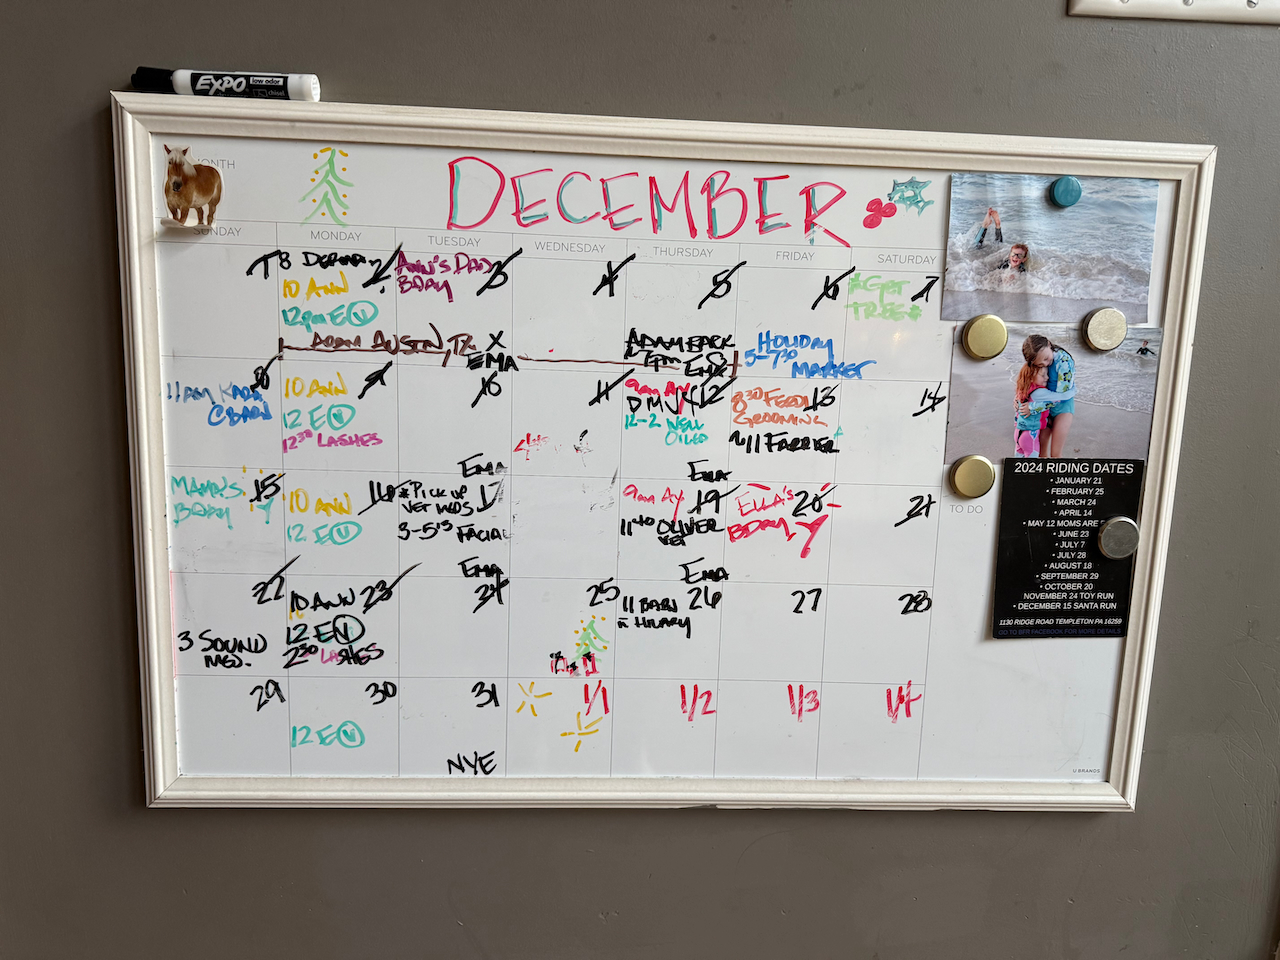 EXPO low odor
chisel
MONTH
DECEMBER
SUNDAY MONDAY TUESDAY WEDNESDAY THURSDAY FRIDAY SATURDAY
1
8 DERMA 2
10 ANN
12pm E V
ANN'S DAD 3
BDAY
X
EMA
ADAM AUSTIN, TX
4
5
ADAM BACK
7pm
EMA
6
HOLIDAY
5-7:30
MARKET
*GET 7
TREE*
8
11AM
@BARN
10 ANN 9
12 E V
12:30 LASHES
10
EMA
11
9am 12
DMV
12-2 WELL
OILED
EMA
8:30 13
GROOMING
~11 FARRIER
14
MAMA'S 15
BDAY
10 ANN 16
12 E V
*PICK UP 17
VET MEDS
3-5:15 FACIAL
EMA
9am 19
11:40 OLIVER
VET
EMA
ELLA'S 20
BDAY
21
22
3 SOUND
MED.
10 ANN 23
12 E V
2:30 LASHES
24
25
11 BARN 26
HILARY
27
28
29
30
12 E V
31
NYE
1/1
1/2
1/3
1/4
TO DO
2024 RIDING DATES
• JANUARY 21
• FEBRUARY 25
• MARCH 24
• APRIL 14
• MAY 12 MOMS ARE
• JUNE 23
• JULY 7
• JULY 28
• AUGUST 18
• SEPTEMBER 29
• OCTOBER 20
NOVEMBER 24 TOY RUN
• DECEMBER 15 SANTA RUN
1130 RIDGE ROAD TEMPLETON PA 16259
GO TO BFR FACEBOOK FOR MORE DETAILS
U BRANDS